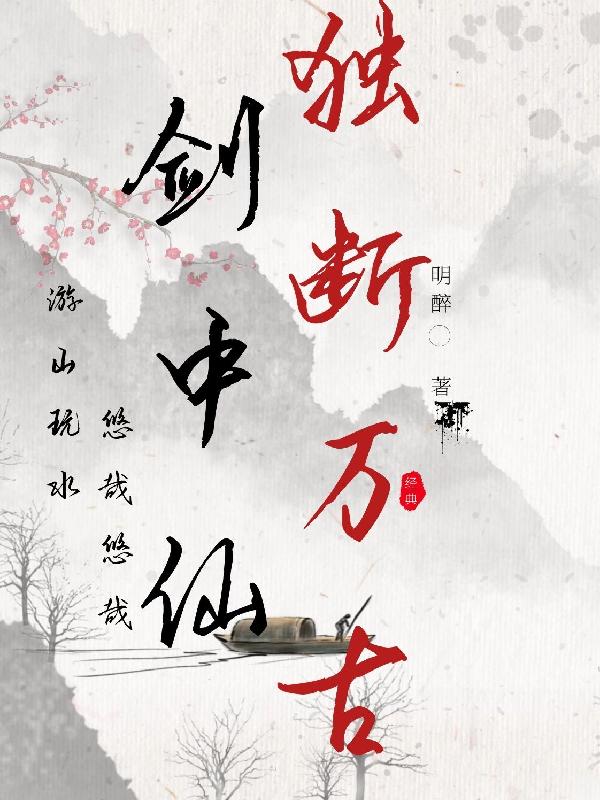 独断万古
剑中仙
明醉〇 著
经典
悠哉悠哉
游山玩水